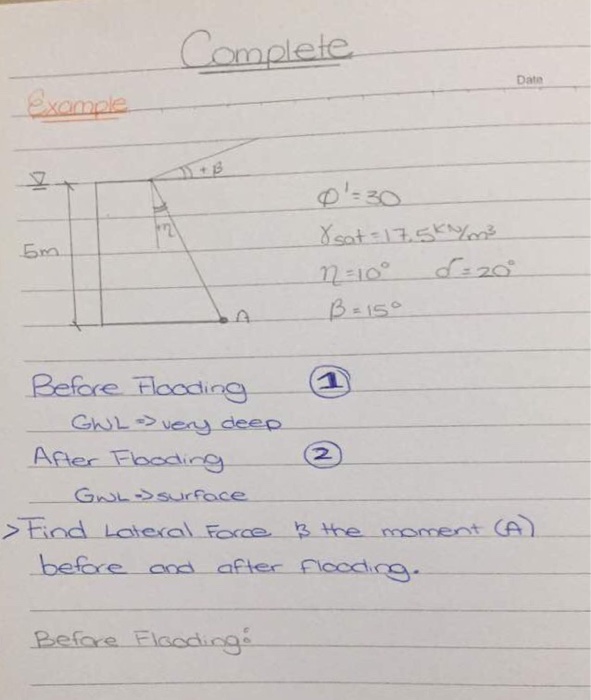 Complete
Date
Example
+β
Φ'=30
γsat=17.5KN/m³
η
5m
η=10° δ=20°
β=15°
A
Before Flooding ①
GWL=>very deep
After Flooding ②
GWL=>surface
>Find Lateral Force & the moment (A)
before and after flooding.
Before Flooding: